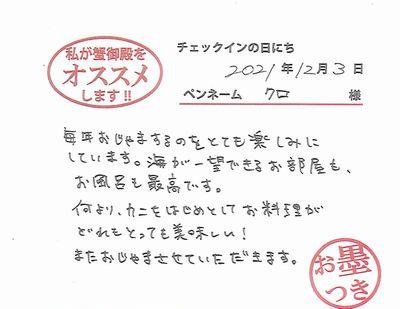 私が蟹御殿を
オススメ
します!!
チェックインの日にち
2021年12月3日
ペンネーム クロ 様
毎年おじゃまするのをとても楽しみに
しています。海が一望できるお部屋も、
お風呂も最高です。
何より、カニをはじめとしてお料理が
どれもとっても美味しい!
またおじゃまさせていただきます。
お墨
つき